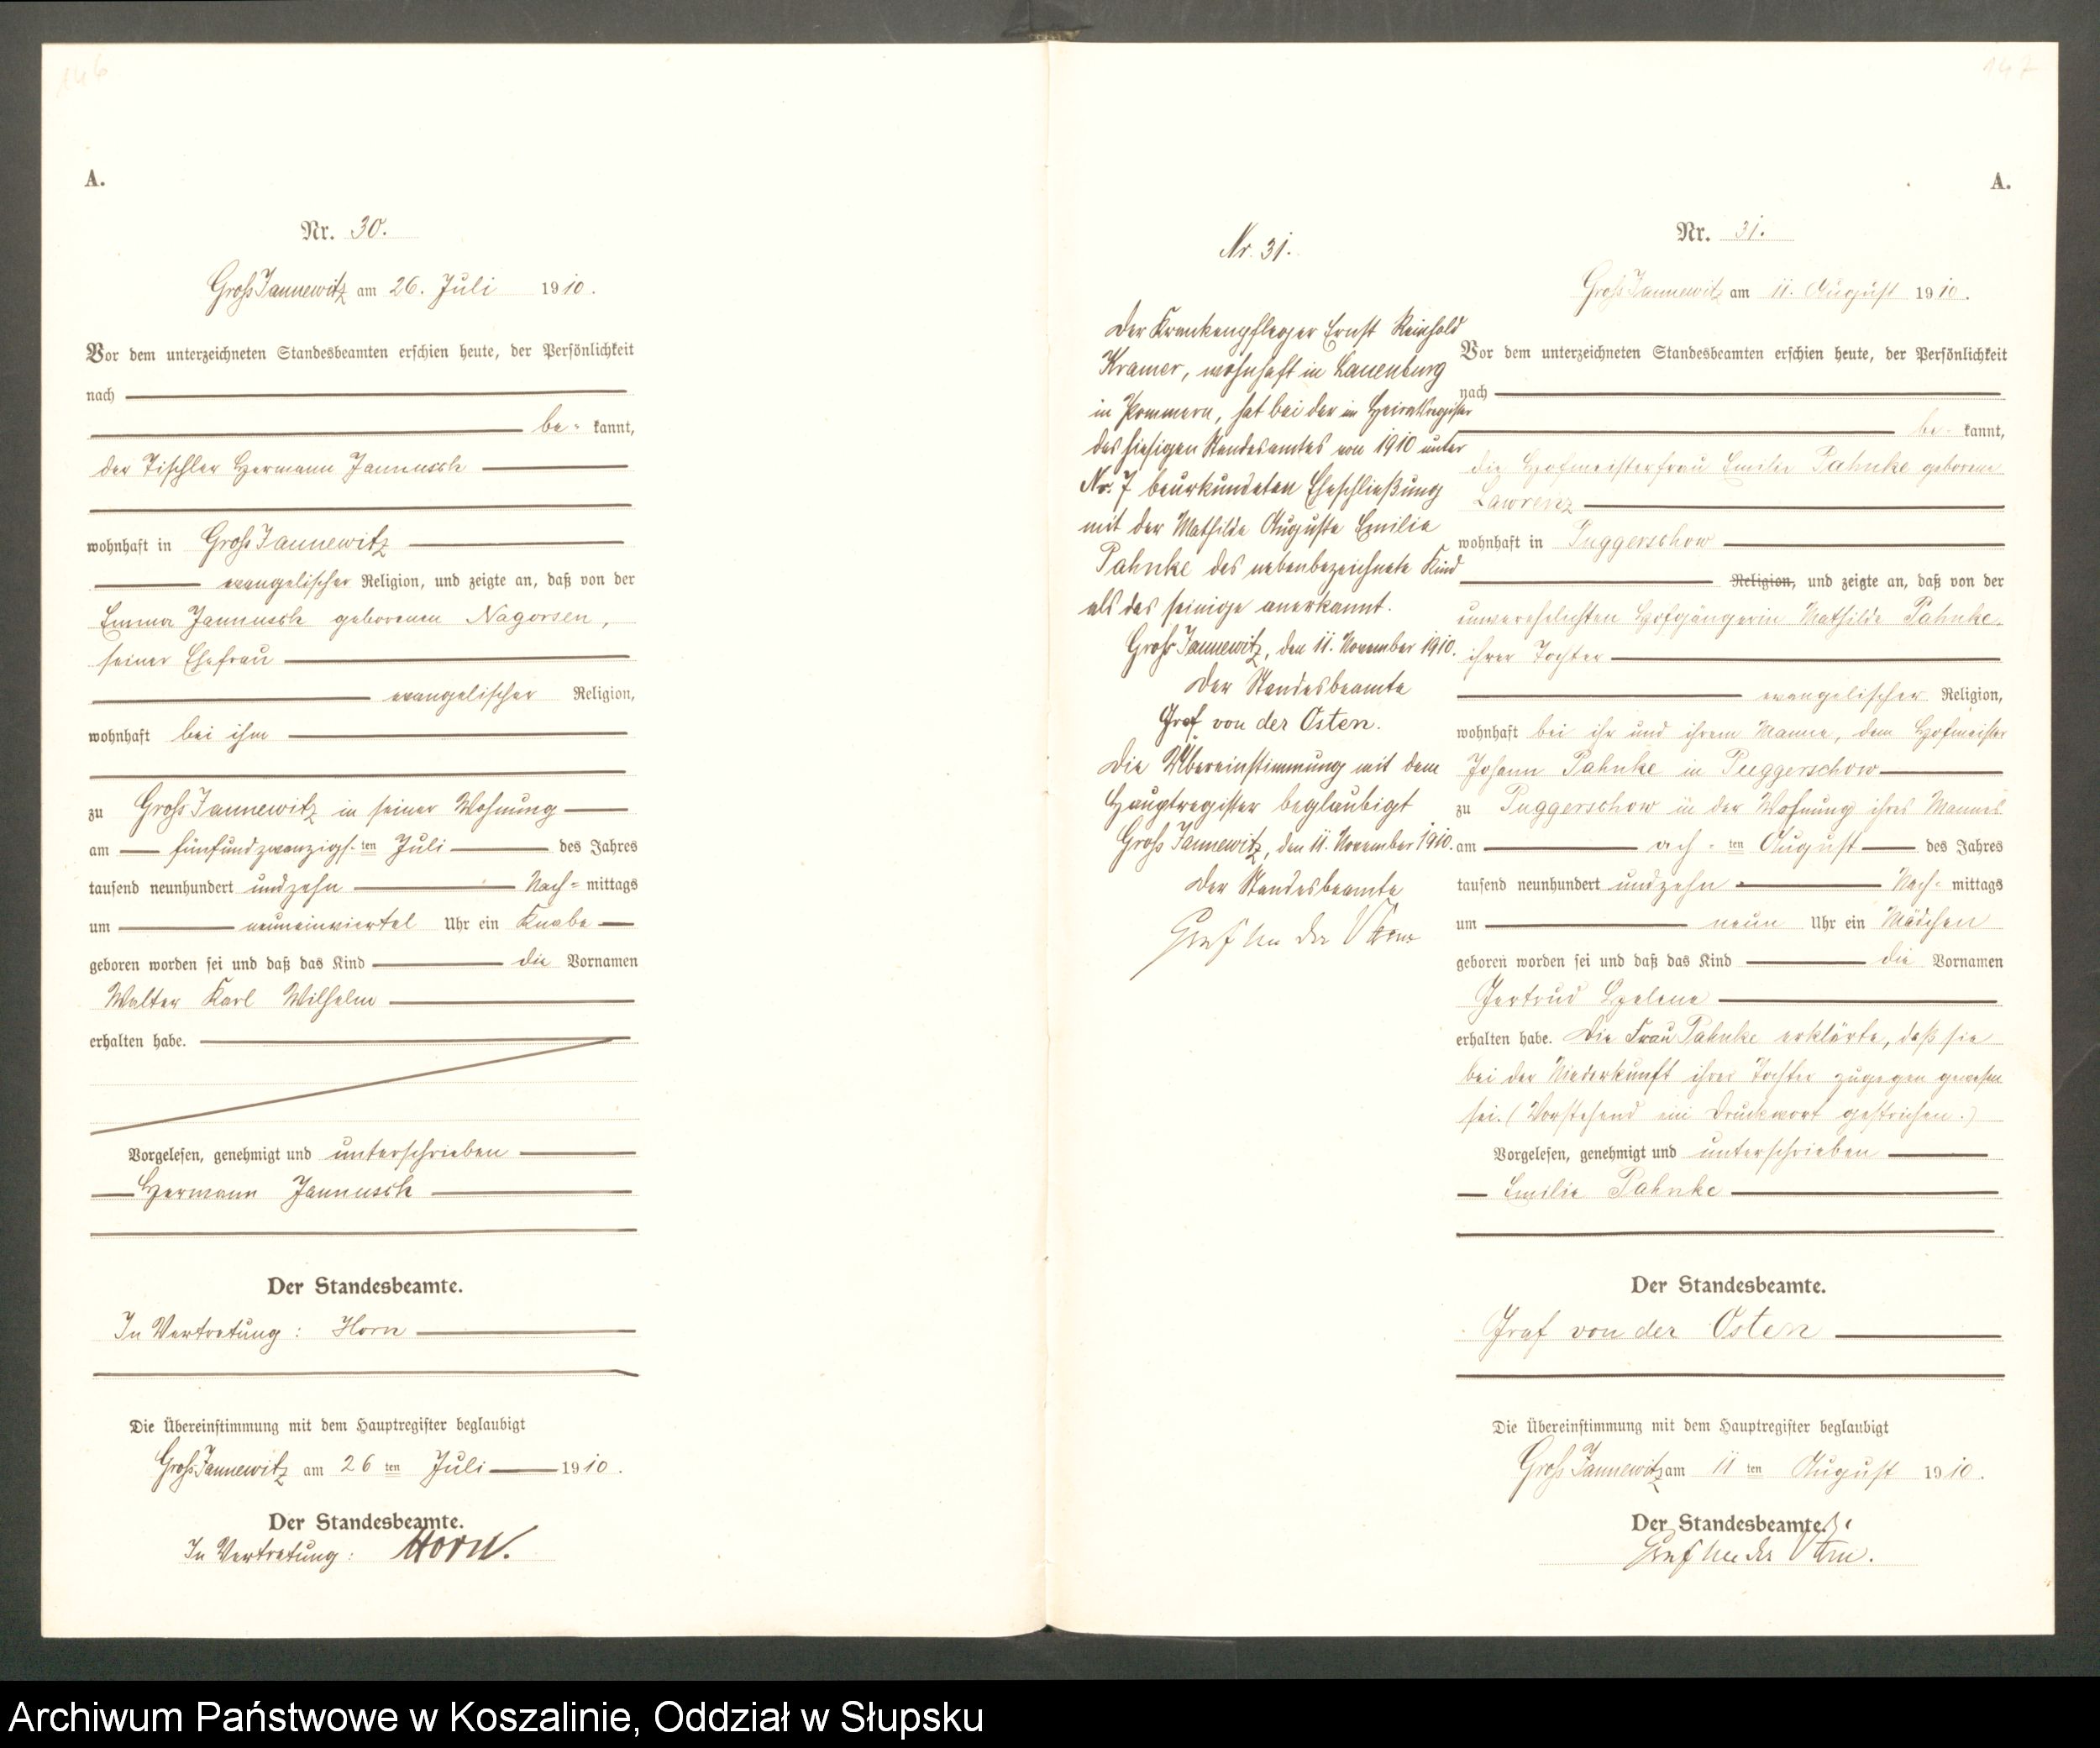 146
A.
Nr. 30.
Groß Jannewitz am 26. Juli 1910.
Vor dem unterzeichneten Standesbeamten erschien heute, der Persönlichkeit
nach
be- kannt,
der Tischler Hermann Jannusch
wohnhaft in Groß Jannewitz
evangelischer Religion, und zeigte an, daß von der
Emma Jannusch geborenen Nagorsen,
seiner Ehefrau
evangelischer Religion,
wohnhaft bei ihm
zu Groß Jannewitz in seiner Wohnung
am fünfundzwanzigs- ten Juli des Jahres
tausend neunhundert undzehn Nach- mittags
um neuneinviertel Uhr ein Knabe
geboren worden sei und daß das Kind die Vornamen
Walter Karl Wilhelm
erhalten habe.
Vorgelesen, genehmigt und unterschrieben
Hermann Jannusch
Der Standesbeamte.
In Vertretung: Horn
Die Übereinstimmung mit dem Hauptregister beglaubigt
Groß Jannewitz am 26 ten Juli 1910.
Der Standesbeamte.
In Vertretung: Horn.
147
A.
Nr. 31.
Der Krankenpfleger Ernst Reinhold
Kramer, wohnhaft in Lauenburg
in Pommern, hat bei der im Heiratsregister
des hiesigen Standesamtes von 1910 unter
Nr. 7 beurkundeten Eheschließung
mit der Mathilde Auguste Emilie
Pahnke das nebenbezeichnete Kind
als das seinige anerkannt.
Groß Jannewitz, den 11. November 1910.
Der Standesbeamte
Graf von der Osten.
Die Übereinstimmung mit dem
Hauptregister beglaubigt
Groß Jannewitz, den 11. November 1910.
Der Standesbeamte
Graf von der Osten
Nr. 31.
Groß Jannewitz am 11. August 1910.
Vor dem unterzeichneten Standesbeamten erschien heute, der Persönlichkeit
nach
be- kannt,
die Hofmeisterfrau Emilie Pahnke geborene
Lawrenz
wohnhaft in Puggerschow
Religion, und zeigte an, daß von der
unverehelichten Hofgängerin Mathilde Pahnke,
ihrer Tochter
evangelischer Religion,
wohnhaft bei ihr und ihrem Manne, dem Hofmeister
Johann Pahnke in Puggerschow
zu Puggerschow in der Wohnung ihres Mannes
am ach- ten August des Jahres
tausend neunhundert undzehn Nach- mittags
um neun Uhr ein Mädchen
geboren worden sei und daß das Kind die Vornamen
Gertrud Helene
erhalten habe. Die Frau Pahnke erklärte, daß sie
bei der Niederkunft ihrer Tochter zugegen gewesen
sei. (Vorstehend ein Druckwort gestrichen.)
Vorgelesen, genehmigt und unterschrieben
Emilie Pahnke
Der Standesbeamte.
Graf von der Osten
Die Übereinstimmung mit dem Hauptregister beglaubigt
Groß Jannewitz am 11 ten August 1910.
Der Standesbeamte.
Graf von der Osten.
Archiwum Państwowe w Koszalinie, Oddział w Słupsku